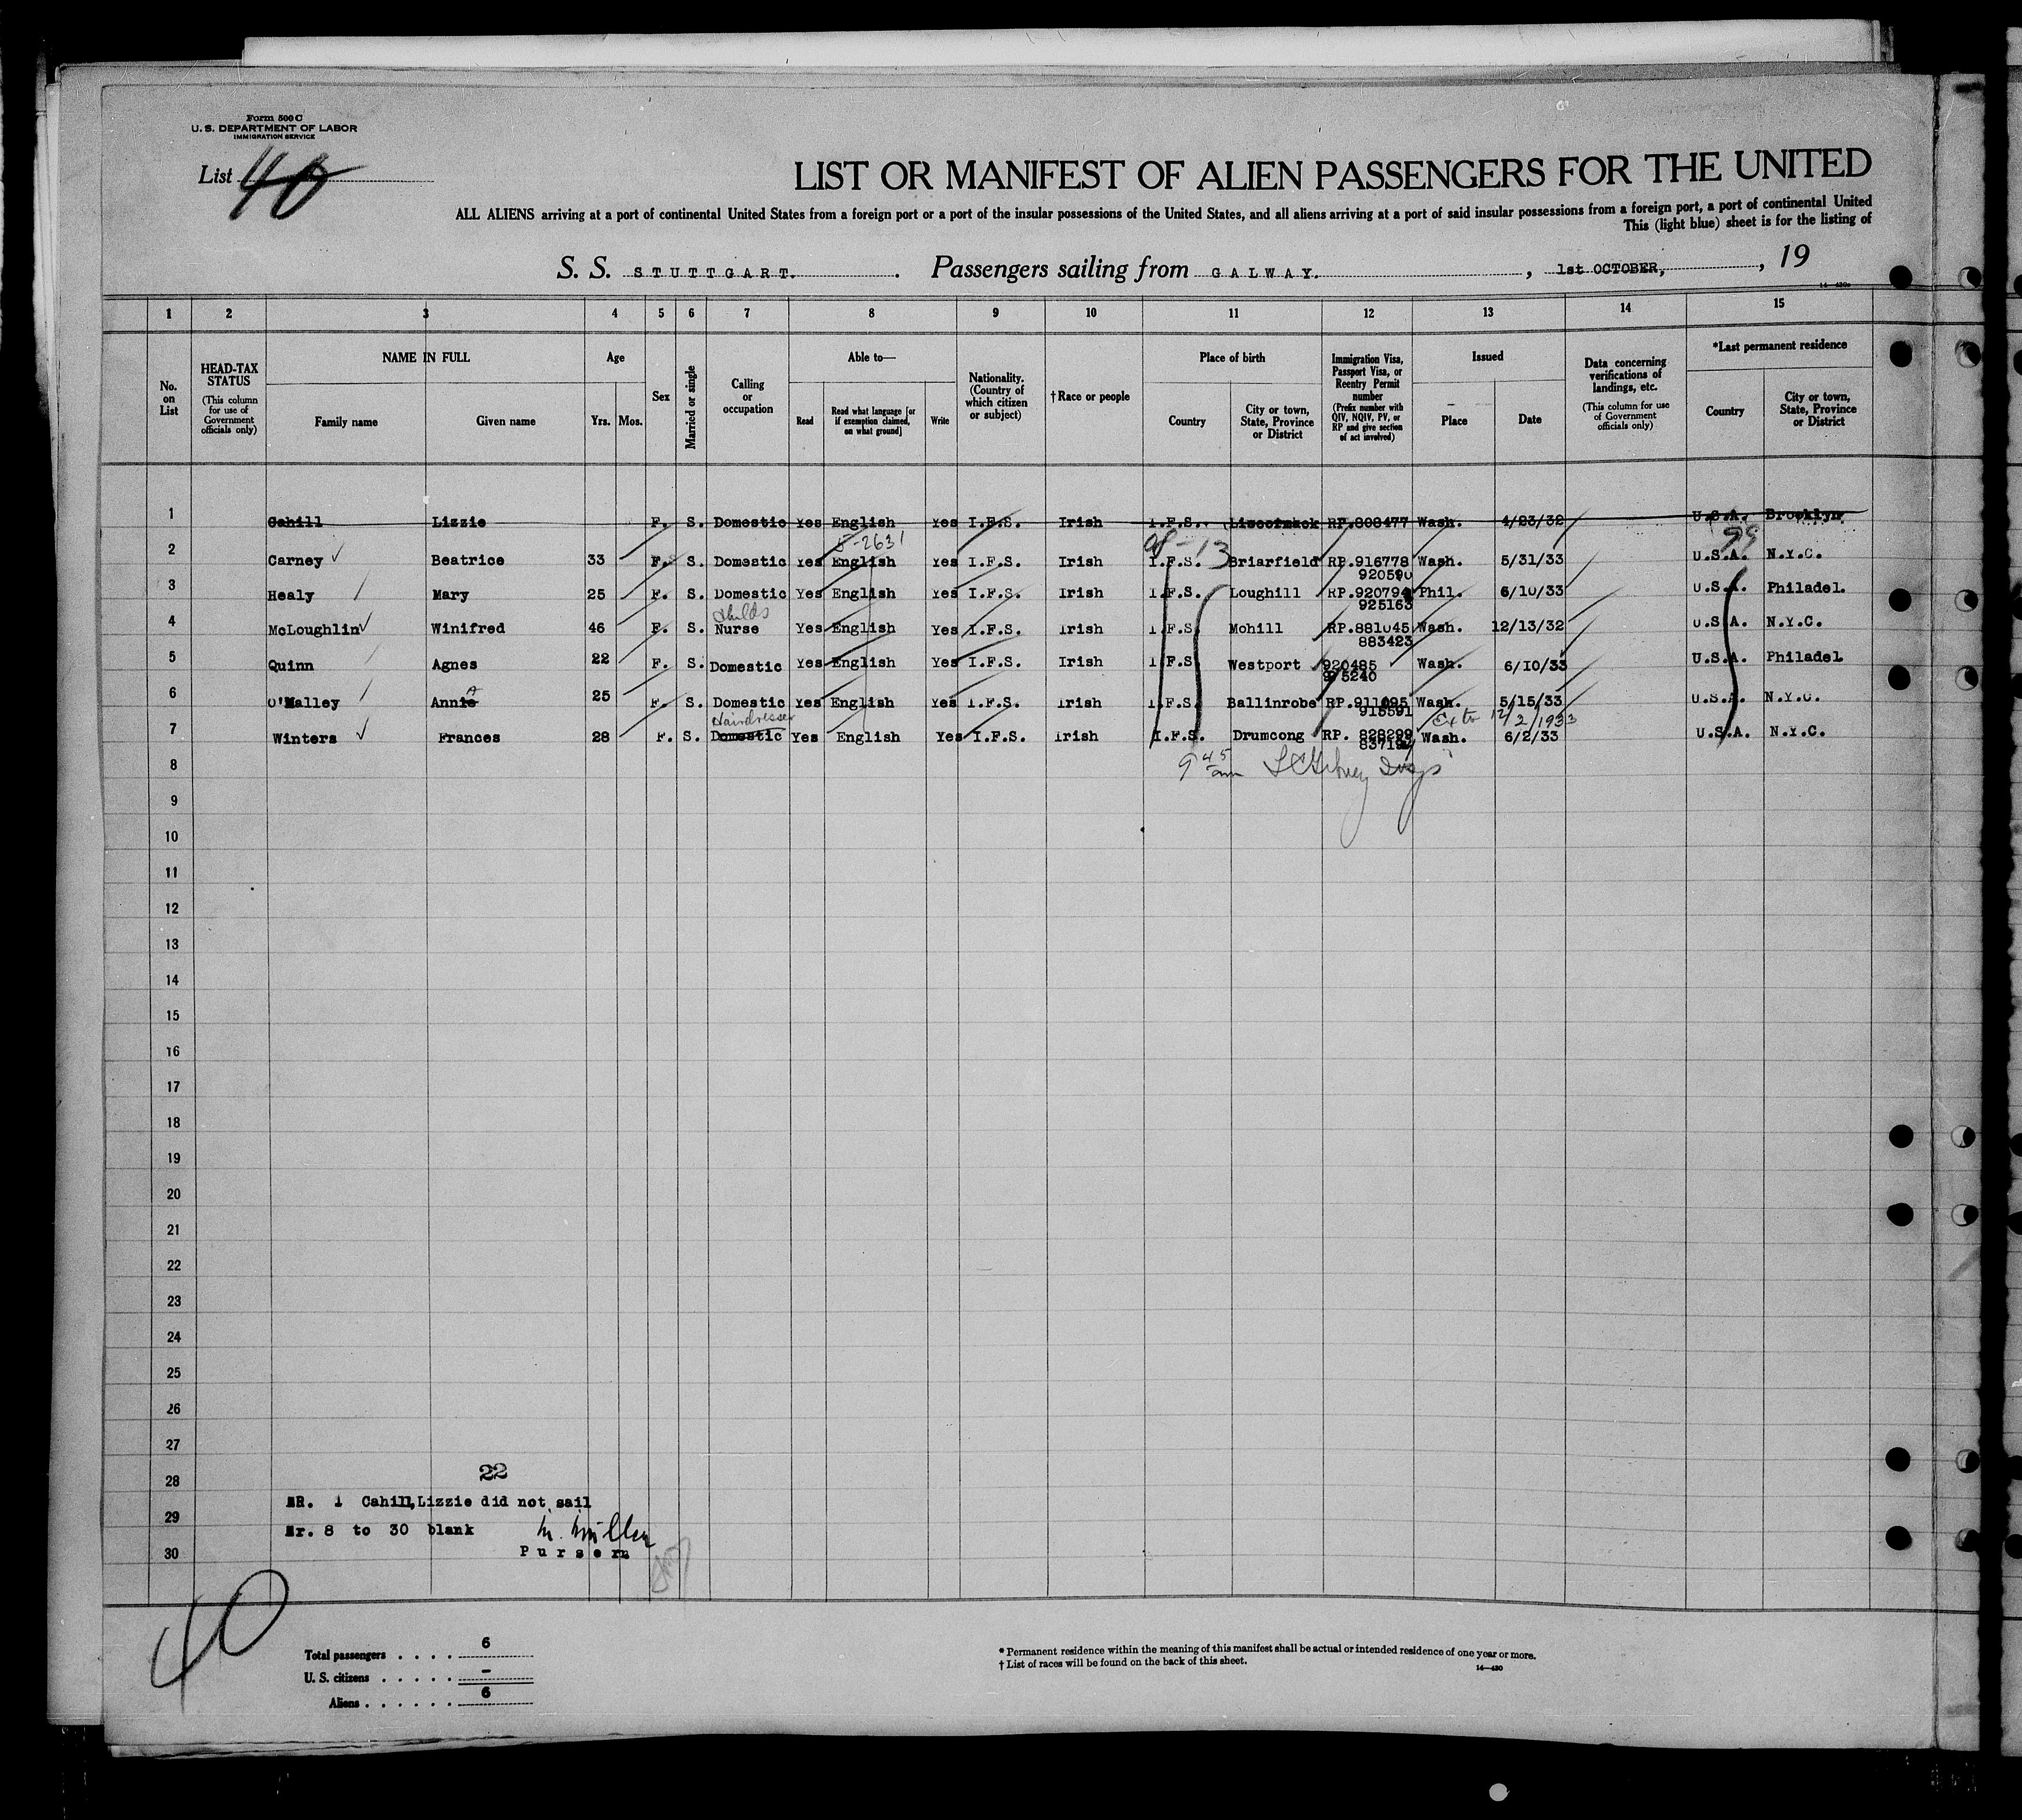 Form 500 C
U. S. DEPARTMENT OF LABOR
IMMIGRATION SERVICE
List 40
LIST OR MANIFEST OF ALIEN PASSENGERS FOR THE UNITED
ALL ALIENS arriving at a port of continental United States from a foreign port or a port of the insular possessions of the United States, and all aliens arriving at a port of said insular possessions from a foreign port, a port of continental United
This (light blue) sheet is for the listing of
S. S. STUTTGART. Passengers sailing from GALWAY. , 1st OCTOBER, , 19
1 2 3 4 5 6 7 8 9 10 11 12 13 14 15
No. on List
HEAD-TAX STATUS
(This column for use of Government officials only)
NAME IN FULL
Family name
Given name
Age
Yrs.
Mos.
Sex
Married or single
Calling or occupation
Able to—
Read
Read what language [or if exemption claimed, on what ground]
Write
Nationality. (Country of which citizen or subject)
† Race or people
Place of birth
Country
City or town, State, Province or District
Immigration Visa, Passport Visa, or Reentry Permit number
(Prefix number with QIV, NQIV, PV, or RP and give section of act involved)
Issued
Place
Date
Data concerning verifications of landings, etc.
(This column for use of Government officials only)
*Last permanent residence
Country
City or town, State, Province or District
1 Cahill Lizzie F. S. Domestic Yes English Yes I.F.S. Irish I.F.S. Liscormack RP.808477 Wash. 4/23/32 U.S.A. Brooklyn
5-2631
99
2 Carney Beatrice 33 F. S. Domestic Yes English Yes I.F.S. Irish I.F.S. Briarfield RP.916778 Wash. 5/31/33 U.S.A. N.Y.C.
920590
3 Healy Mary 25 F. S. Domestic Yes English Yes I.F.S. Irish I.F.S. Loughill RP.920794 Phil. 6/10/33 U.S.A. Philadel.
925163
Childs
4 McLoughlin Winifred 46 F. S. Nurse Yes English Yes I.F.S. Irish I.F.S. Mohill RP.881045 Wash. 12/13/32 U.S.A. N.Y.C.
883423
5 Quinn Agnes 22 F. S. Domestic Yes English Yes I.F.S. Irish I.F.S. Westport 920485 Wash. 6/10/33 U.S.A. Philadel.
975240
6 O'Malley Annie A 25 F. S. Domestic Yes English Yes I.F.S. Irish I.F.S. Ballinrobe RP.911095 Wash. 5/15/33 U.S.A. N.Y.C.
915591
Hairdresser
Ex to 12/2/1933
7 Winters Frances 28 F. S. Domestic Yes English Yes I.F.S. Irish I.F.S. Drumcong RP. 828299 Wash. 6/2/33 U.S.A. N.Y.C.
9 45 am
8
9
10
11
12
13
14
15
16
17
18
19
20
21
22
23
24
25
26
27
22
28
NR. 1 Cahill,Lizzie did not sail
29
Nr. 8 to 30 blank
30
Purser
40
Total passengers . . . . 6
U. S. citizens . . . . . –
Aliens . . . . . . 6
* Permanent residence within the meaning of this manifest shall be actual or intended residence of one year or more.
† List of races will be found on the back of this sheet.
14—430